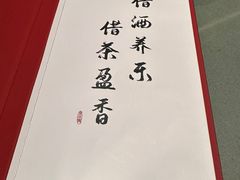 借酒养乐
借茶盈香